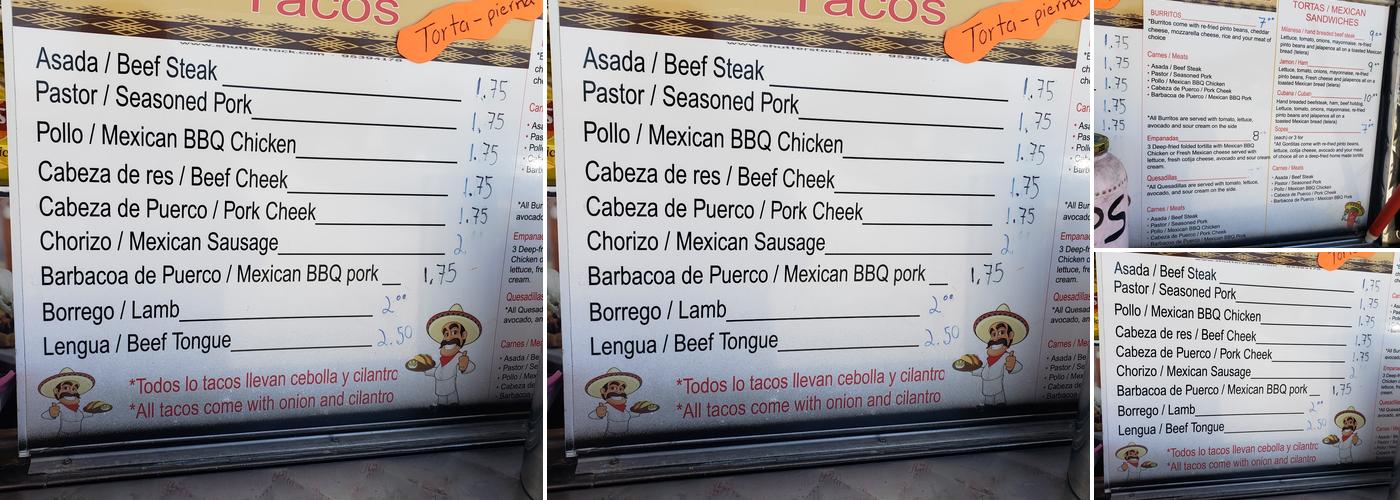 Tacos
Torta-pierna
www.shutterstock.com
Asada / Beef Steak 1.75
Pastor / Seasoned Pork 1.75
Pollo / Mexican BBQ Chicken 1.75
Cabeza de res / Beef Cheek 1.75
Cabeza de Puerco / Pork Cheek 1.75
Chorizo / Mexican Sausage 2
Barbacoa de Puerco / Mexican BBQ pork 1,75
Borrego / Lamb 2.00
Lengua / Beef Tongue 2.50
*Todos lo tacos llevan cebolla y cilantro
*All tacos come with onion and cilantro
Tacos
Torta-pierna
www.shutterstock.com
Asada / Beef Steak 1.75
Pastor / Seasoned Pork 1.75
Pollo / Mexican BBQ Chicken 1.75
Cabeza de res / Beef Cheek 1.75
Cabeza de Puerco / Pork Cheek 1.75
Chorizo / Mexican Sausage 2
Barbacoa de Puerco / Mexican BBQ pork 1,75
Borrego / Lamb 2.00
Lengua / Beef Tongue 2.50
*Todos lo tacos llevan cebolla y cilantro
*All tacos come with onion and cilantro
1.75
1.75
1.75
1.75
1.75
BURRITOS 7.00
*Burritos come with re-fried pinto beans, cheddar
cheese, mozzarella cheese, rice and your meat of
choice
Carnes / Meats
• Asada / Beef Steak
• Pastor / Seasoned Pork
• Pollo / Mexican BBQ Chicken
• Cabeza de Puerco / Pork Cheek
• Barbacoa de Puerco / Mexican BBQ Pork
*All Burritos are served with tomato, lettuce,
avocado and sour cream on the side
Empanadas 8
3 Deep-fried folded tortilla with Mexican BBQ
Chicken or Fresh Mexican cheese served with
lettuce, fresh cotija cheese, avocado and sour cream
Quesadillas
*All Quesadillas are served with tomato, lettuce,
avocado, and sour cream on the side
Carnes / Meats
• Asada / Beef Steak
• Pastor / Seasoned Pork
• Pollo / Mexican BBQ Chicken
• Cabeza de Puerco / Pork Cheek
TORTAS / MEXICAN
SANDWICHES
Milanesa / hand breaded beef steak 9.00
Lettuce, tomato, onions, mayonnaise, re-fried
pinto beans and jalapenos all on a toasted Mexican
bread (telera)
Jamon / Ham 9
Lettuce, tomato, onions, mayonnaise, re-fried
pinto beans, Fresh cheese and jalapenos all on a
toasted Mexican bread (telera)
Cubana / Cuban 10
Hand breaded beefsteak, ham, beef hotdog,
Lettuce, tomato, onions, mayonnaise, re-fried
pinto beans and jalapenos all on a
toasted Mexican bread (telera)
Sopes 7
(each) or 3 for
*All Gorditas come with re-fried pinto beans,
lettuce, cotija cheese, avocado and your meat
of choice all on a deep-fried home made tortilla
Carnes / Meats
• Asada / Beef Steak
• Pastor / Seasoned Pork
• Pollo / Mexican BBQ Chicken
• Cabeza de Puerco / Pork Cheek
• Barbacoa de Puerco / Mexican BBQ Pork
Asada / Beef Steak 1.75
Pastor / Seasoned Pork 1.75
Pollo / Mexican BBQ Chicken 1.75
Cabeza de res / Beef Cheek 1.75
Cabeza de Puerco / Pork Cheek 1.75
Chorizo / Mexican Sausage 2
Barbacoa de Puerco / Mexican BBQ pork 1,75
Borrego / Lamb 2.00
Lengua / Beef Tongue 2.50
*Todos lo tacos llevan cebolla y cilantro
*All tacos come with onion and cilantro